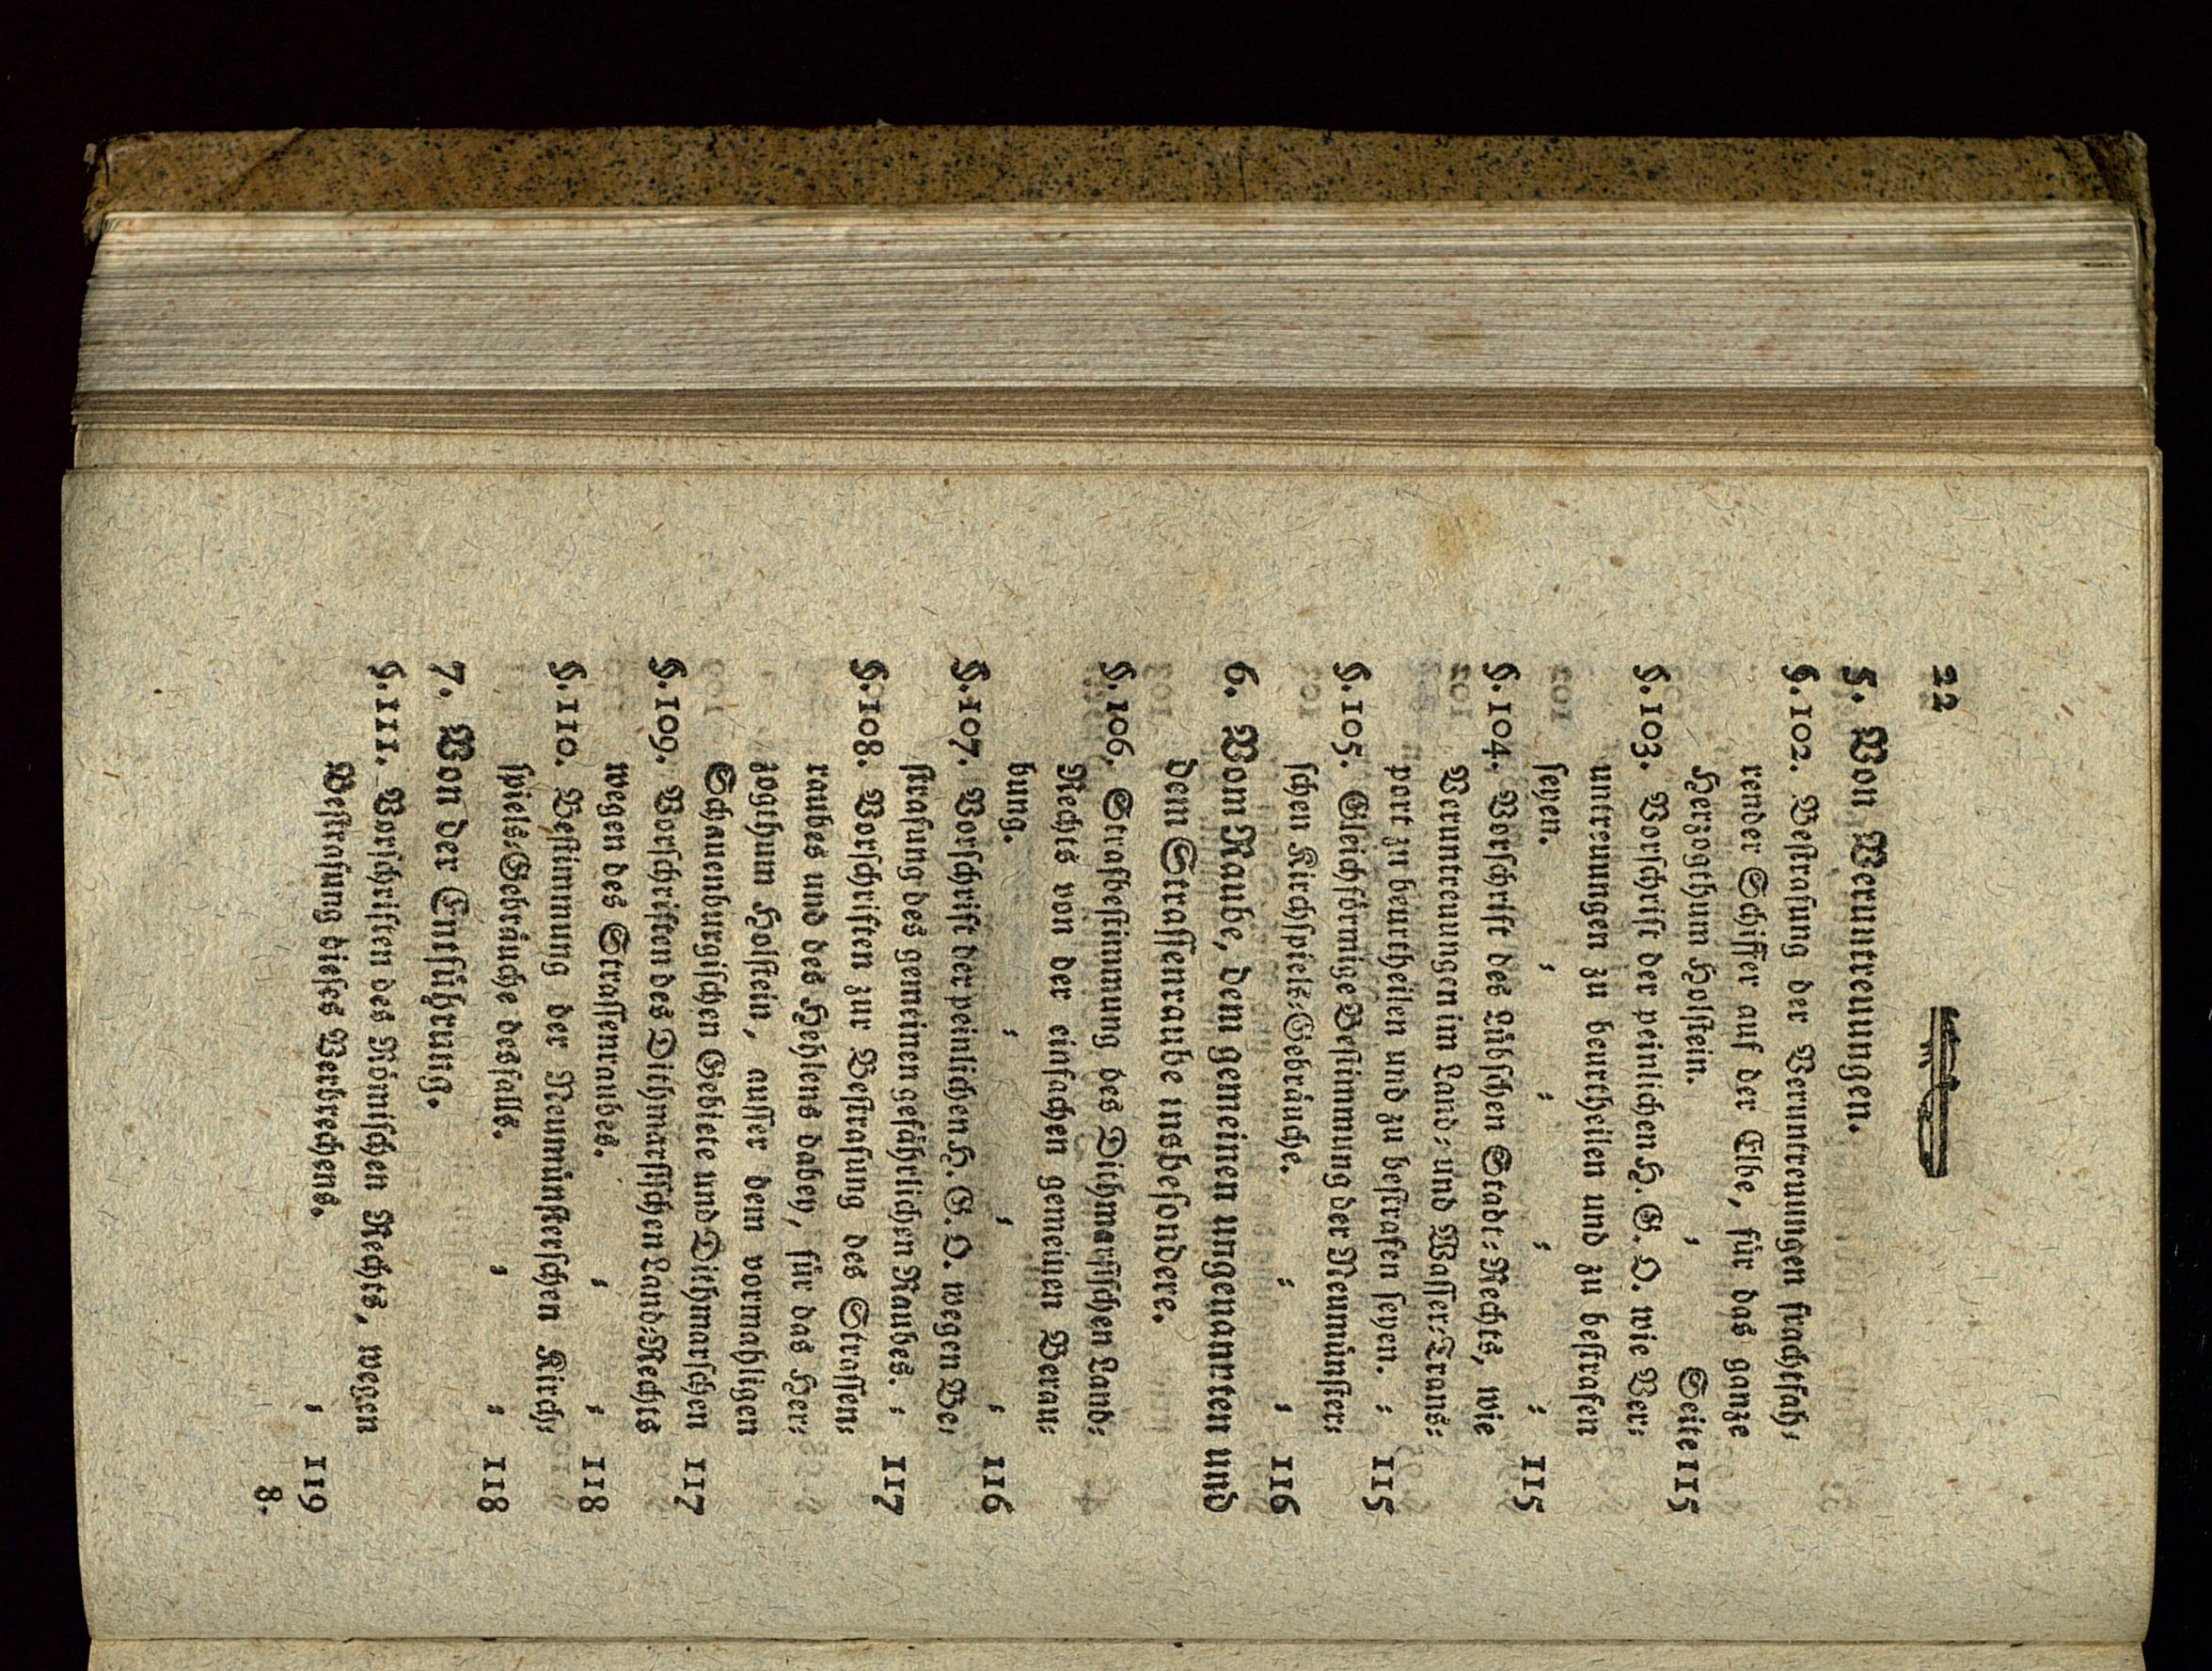 22
5. Von Veruntreuungen.
§. 102. Bestrafung der Veruntreuungen frachtfah⸗
render Schiffer auf der Elbe, für das ganze
Herzogthum Holstein. ⸗ Seite 115
§. 103. Vorschrift der peinlichen H. G. O. wie Ver⸗
untreuungen zu beurtheilen und zu bestrafen
seyen. ⸗ ⸗ ⸗ ⸗ 115
§. 104. Vorschrift des Lübschen Stadt⸗Rechts, wie
Veruntreuungen im Land⸗ und Wasser⸗Trans⸗
port zu beurtheilen und zu bestrafen seyen. ⸗ 115
§. 105. Gleichförmige Bestimmung der Neumünster⸗
schen Kirchspiels⸗Gebräuche. ⸗ ⸗ 116
6. Vom Raube, dem gemeinen ungenannten und
dem Strassenraube insbesondere.
§. 106. Strafbestimmung des Dithmarsischen Land⸗
Rechts von der einfachen gemeinen Berau⸗
bung. ⸗ ⸗ ⸗ 116
§. 107. Vorschrift der peinlichen H. G. O. wegen Be⸗
strafung des gemeinen gefährlichen Raubes. ⸗ 117
§. 108. Vorschriften zur Bestrafung des Strassen⸗
raubes und des Hehlens dabey, für das Her⸗
zogthum Holstein, ausser dem vormahligen
Schauenburgischen Gebiete und Dithmarschen 117
§. 109. Vorschriften des Dithmarsischen Land⸗Rechts
wegen des Strassenraubes. ⸗ ⸗ 118
§. 110. Bestimmung der Neumünsterschen Kirch⸗
spiels⸗Gebräuche desfalls. ⸗ ⸗ 118
7. Von der Entführung.
§. 111. Vorschriften des Römischen Rechts, wegen
Bestrafung dieses Verbrechens. ⸗ 119
8.